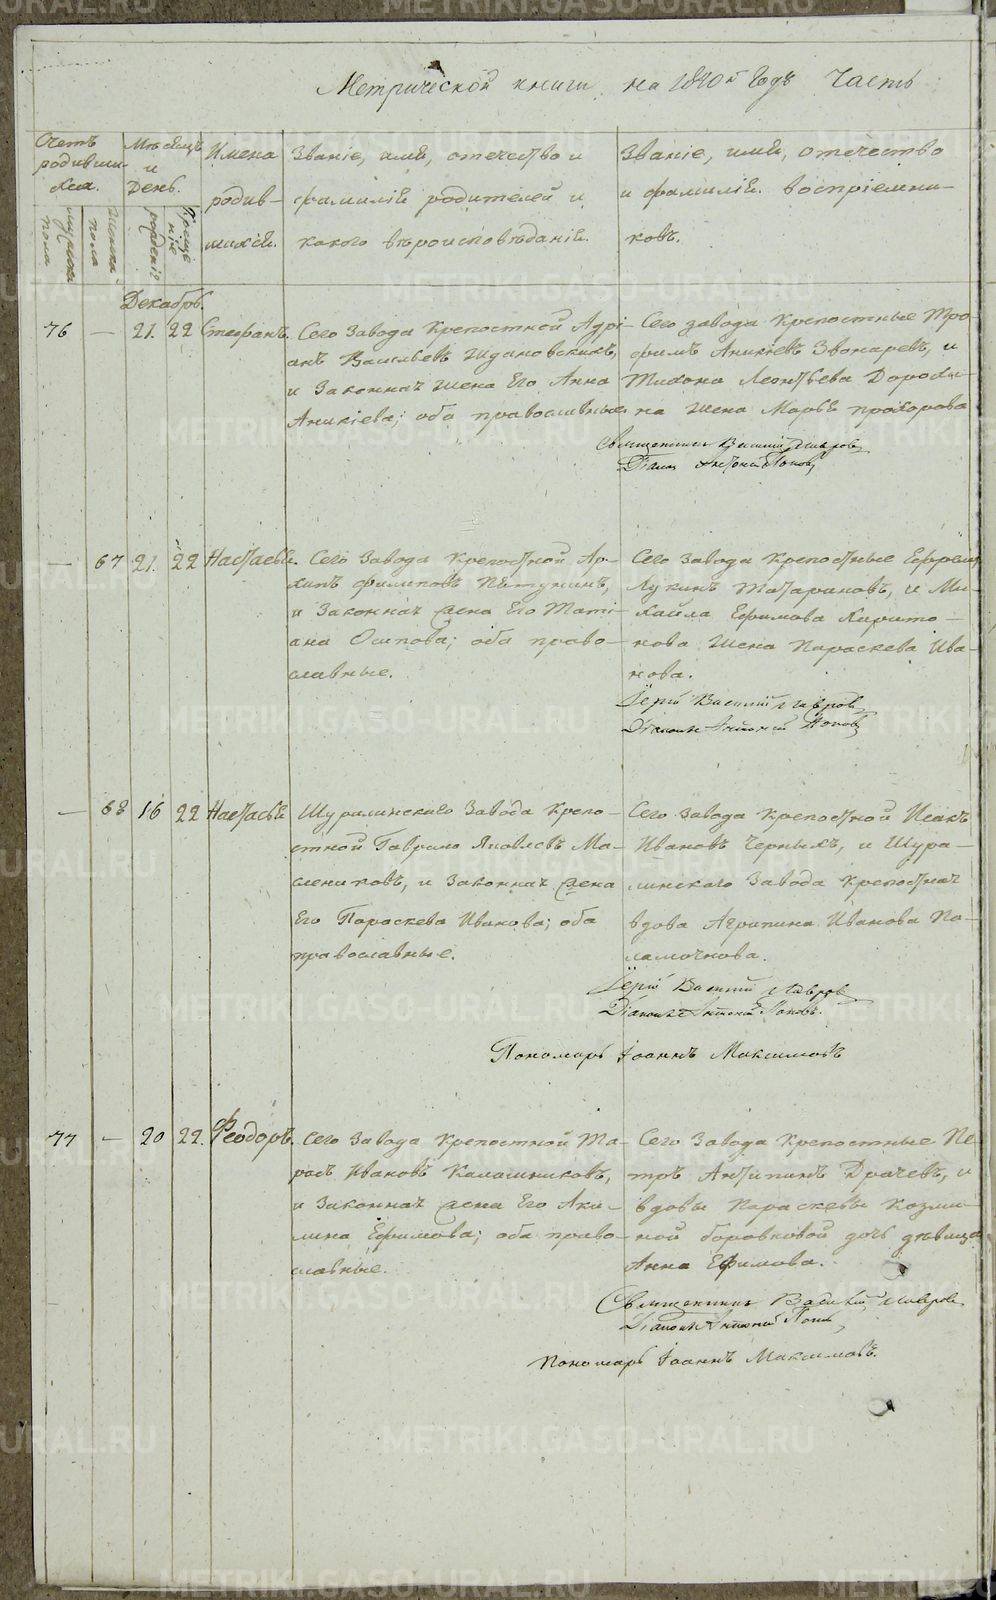 Метрической книги на 1840й Годъ Часть
Счетъ родивших­ся.
Мѣсяцъ и День.
Имена родив-
шихся.
Званіе, имя, отечество и
фамилія родителей и
какого вѣроисповѣданія.
Званіе, имя, отечество
и фамилія воспріемни-
ковъ.
мужеска пола
женска пола
рожденія
крещенія
Декабрь.
76 — 21. 22 Стефанъ.
Сего Завода Крепостной Адрі-
анъ Васильевъ Ждановскихъ,
и Законная жена Его Анна
Аникіева; оба православные.
Сего завода Крепостные Тро-
фимъ Аникіевъ Звонаревъ, и
Тихона Леонтьева Дорохи-
на жена Марья прохорова
Священникъ Василій Лавровъ
Діаконъ Антоній Поповъ
— 67 21. 22 Настасья.
Сего Завода Крепостной Ар-
хипъ филиповъ Пѣтунинъ,
и Законная жена Его Тати-
ана Осипова; оба право-
славные.
Сего Завода Крепостные Ефремъ
Лукинъ Татариновъ, и Ми-
хайла Ефимова Харито-
нова жена Параскева Ива-
нова.
Іерей Василій Лавровъ
Діаконъ Антоній Поповъ
— 68 16 22 Настасья
Шуралинскаго Завода Крепо-
стной Гаврило Яковлевъ Ма-
слениковъ, и Законная жена
Его Параскева Иванова; оба
православные.
Сего Завода Крепостной Исакъ
Ивановъ Черныхъ, и Шура-
линскаго Завода Крепостная
вдова Агрипина Иванова По-
ламочнова.
Іерей Василій Лавровъ
Діаконъ Антоній Поповъ.
Пономарь Іоаннъ Максимовъ
77 — 20 22. Феодоръ.
Сего Завода Крепостной Та-
расъ Ивановъ Калашниковъ,
и Законная жена Его Аки-
лина Ефимова; оба право-
славные.
Сего Завода Крепостные Пе-
тръ Антипинъ Драчевъ, и
вдовы Параскевы Козми-
ной боровковой дочь дѣвица
Анна Ефимова.
Священникъ Василій Лавровъ
Діаконъ Антоній Поповъ
Пономарь Іоаннъ Максимовъ.
METRIKI.GASO-URAL.RU